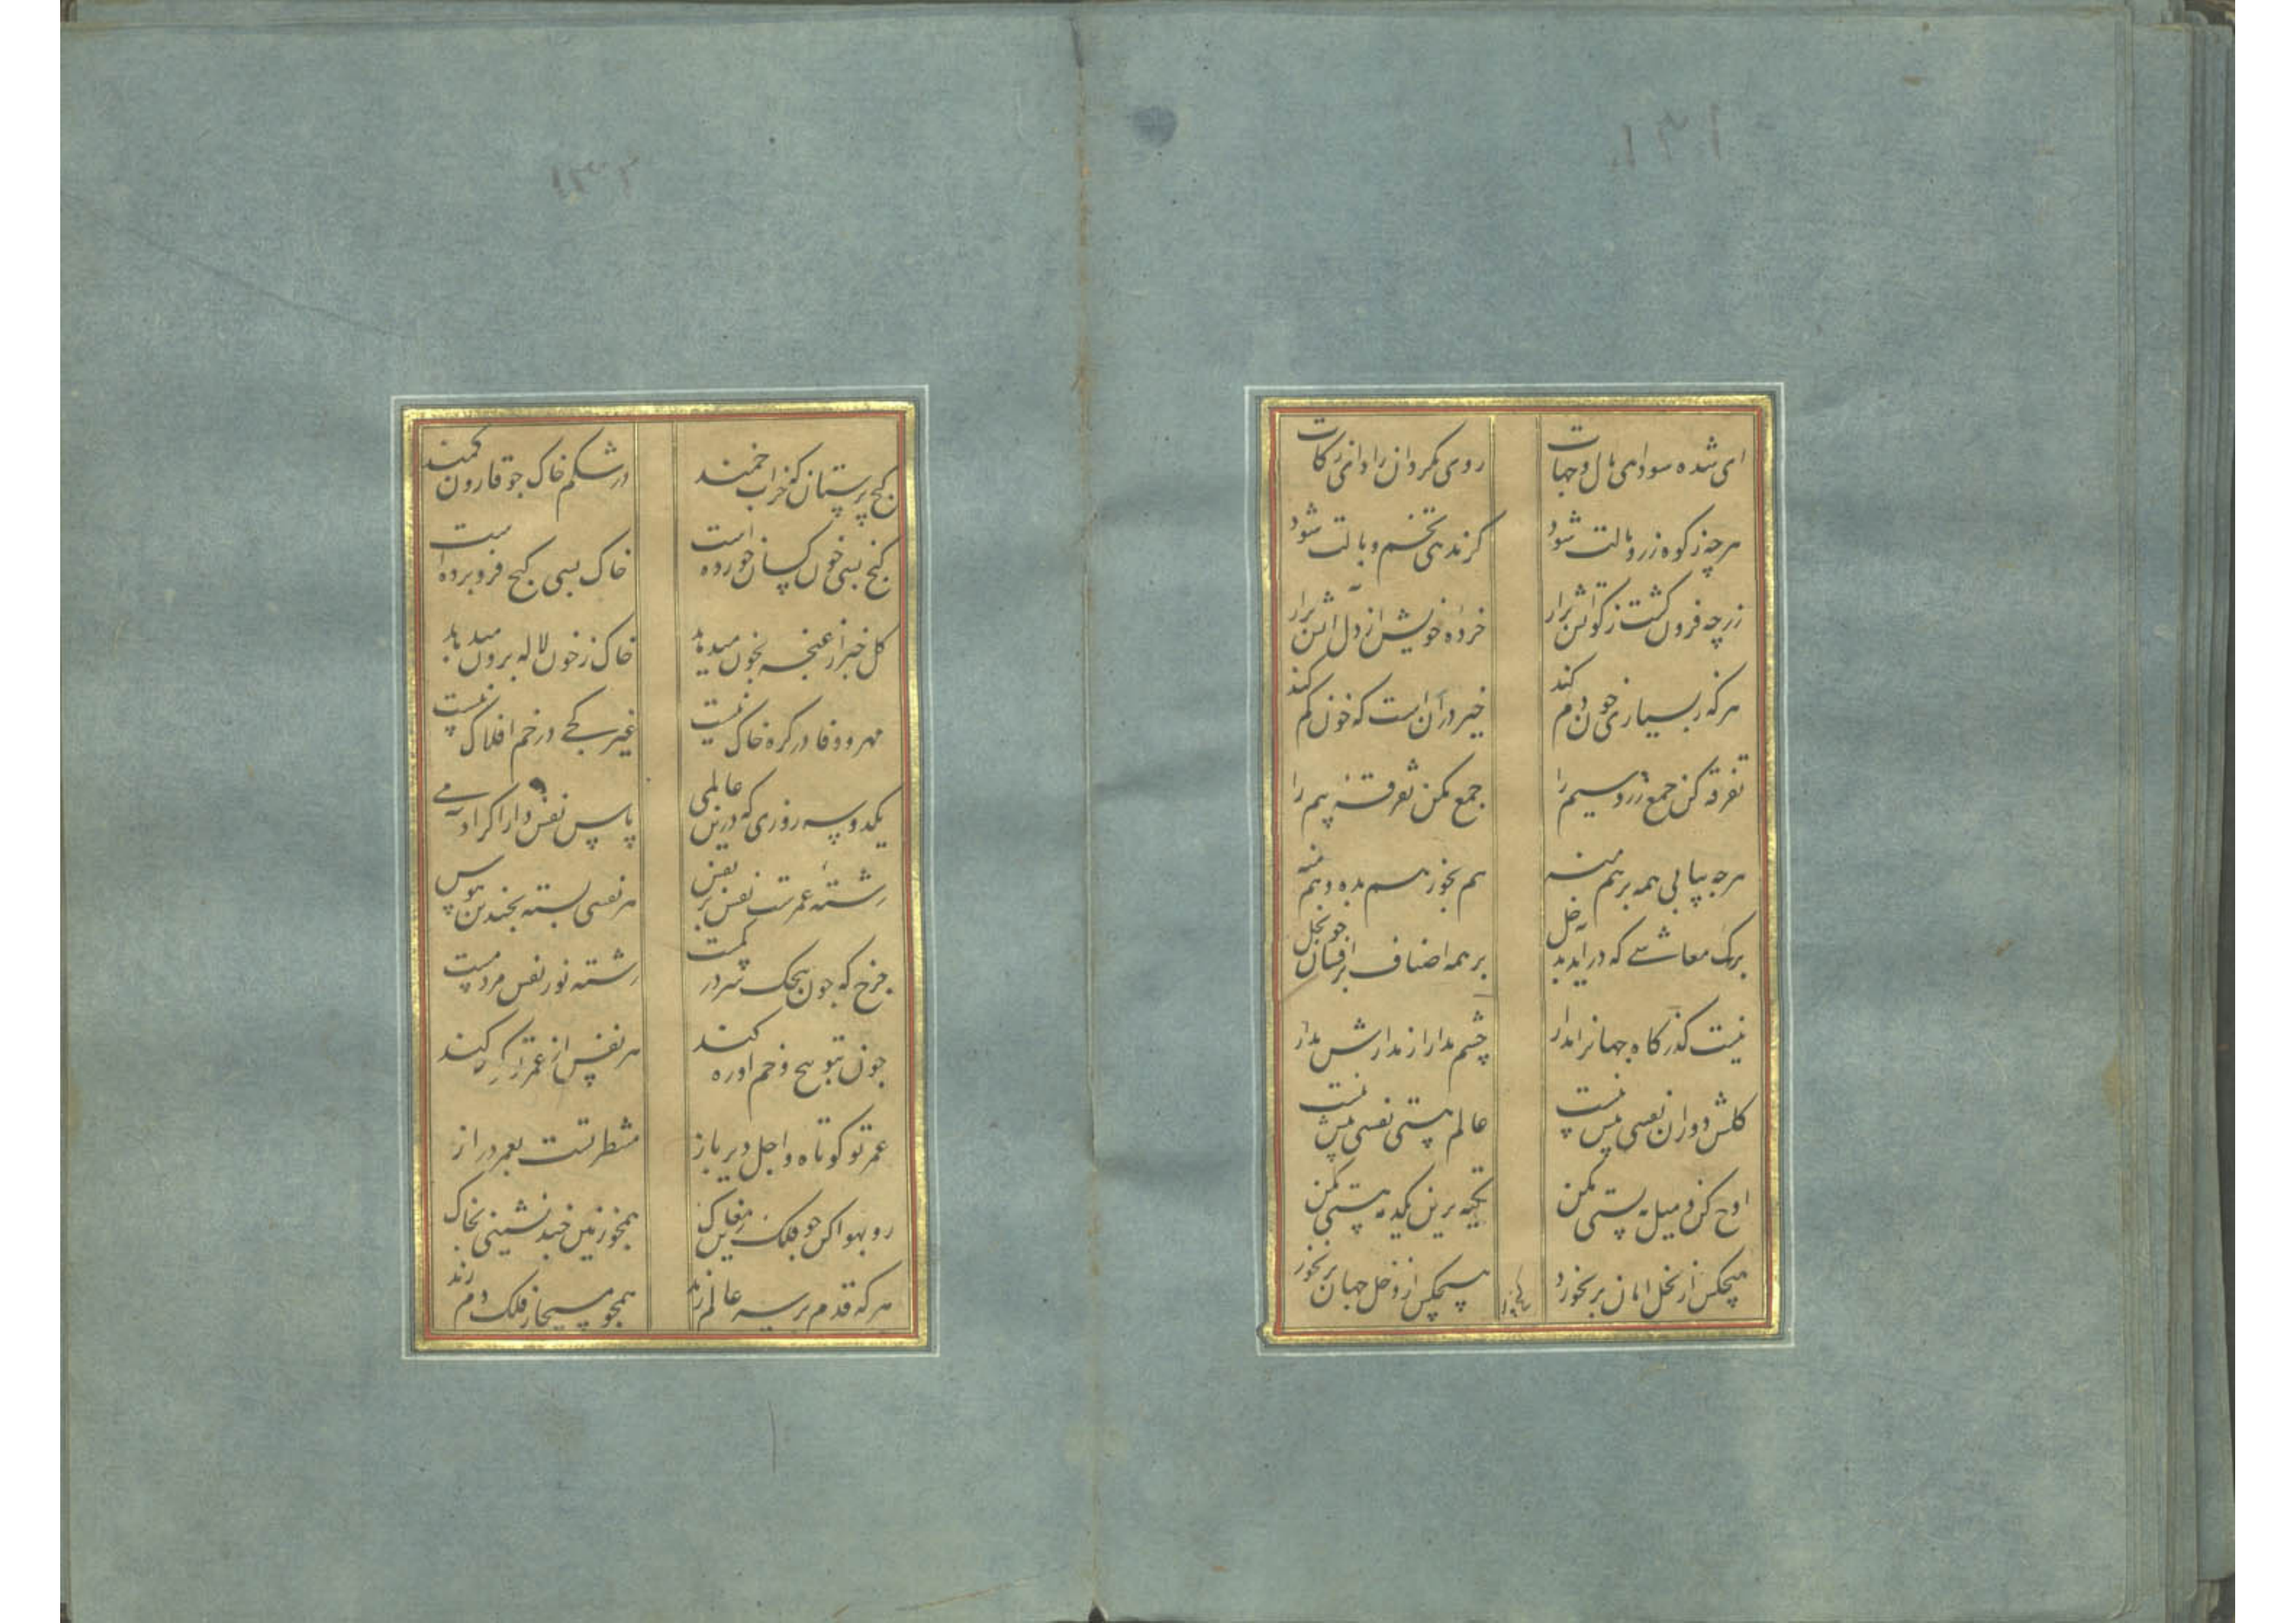 ای شده سودای مال و جهات
روی مگردان ز ادای زکات
هرچه زکوه زر و مالت شود
گر ندهی تخم وبالت شود
زر چو فزون گشت زکواتش برار
خرده خویش از دل آتش برار
هرکه ز بسیاری خون دم کند
خیر در آن است که خون کم کند
تفرقه کن جمع زر و سیم را
جمع مکن تفرقه بیم را
هرچه بیابی همه برهم منه
هم بخور هم بده و هم بنه
برگ معاشی که در آید بدخل
بر همه اصناف برافشان چو نخل
نیست گذرگاه جهانرا مدار
چشم مدار از مدارش مدار
گلشن دوران نفسی بیش نیست
عالم هستی نفسی بیش نیست
اوج کزین میل به پستی مکن
تکیه برین یکدمه هستی مکن
هیچکس از نخل امان بر نخورد
هیچکس از دخل جهان بر نخورد
گنج پرستان که خراب خمند
در شکم خاک چو قارون کمند
گنج بسی خون کسان خورده است
خاک بسی گنج فرو برده است
گل خبر از غنچه بخون میدهد
خاک ز خون لاله برون میدهد
مهر و وفا در کره خاک نیست
غیر کجی در خم افلاک نیست
یکدو سه روزی که درین عالمی
پاس نفس دار اگر آدمی
رشته عمرت نفس بر نفس
هر نفسی بسته بچندین هوس
چرخ که چون بیچک سردر کمست
رشته نور نفس مردمست
چون تو پیچ و خم آورد کند
هر نفس از عمر تو
عمر تو کوتاه و اجل دیر باز
منتظر تست بعمر دراز
رو بهوا کن چو فلک زین مغاک
همچو زمین چند نشینی بخاک
هرکه قدم بر سر عالم زند
همچو مسیحا ز فلک دم زند